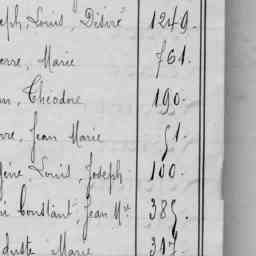 eph, Louis, Désiré 1249.
erre, Marie 761.
n, Théodore 190.
rre, Jean Marie 51.
gène Louis, Joseph. 100.
Constant, Jean Mie 385.
Marie 317.